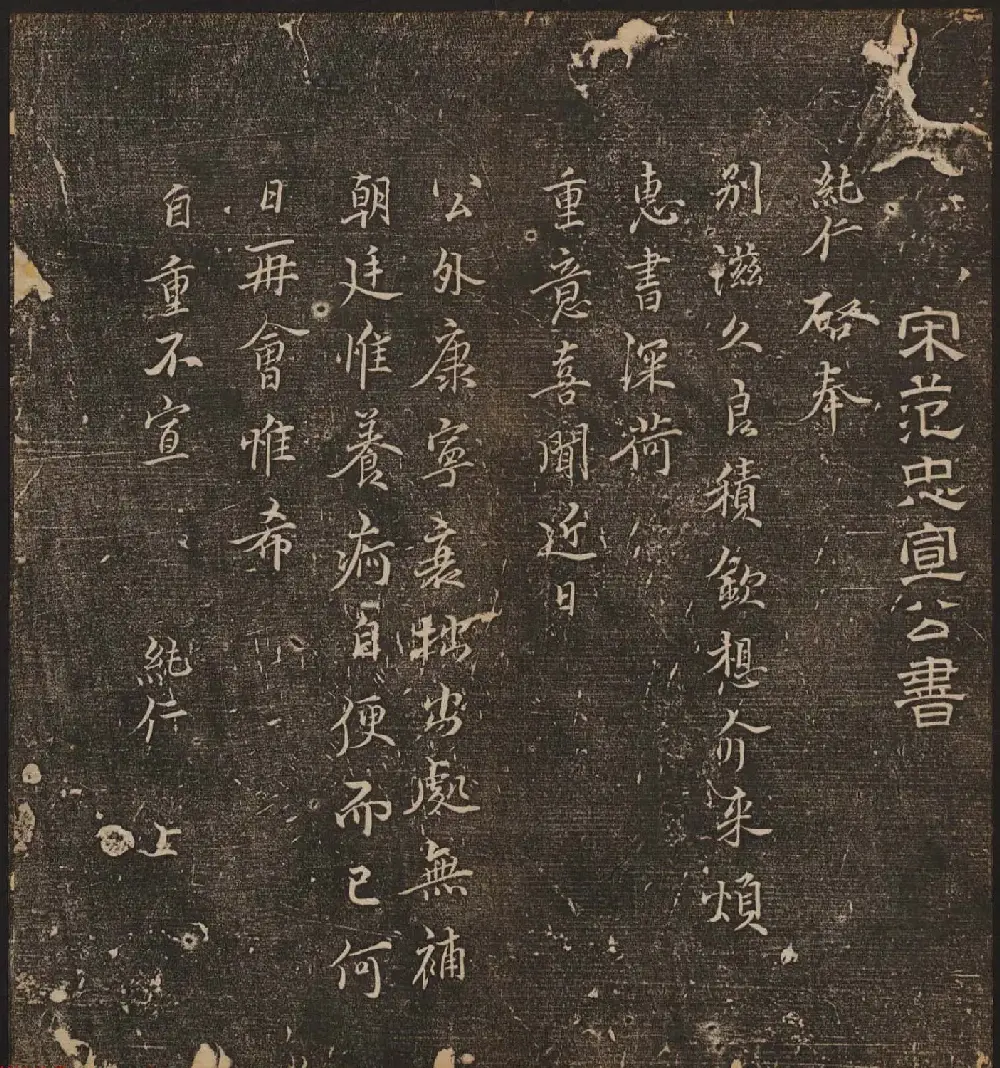 宋范忠宣公書
純仁啓奉
别滋久良積欽想介来煩
惠書深荷
重意喜聞近日
公外康寧衰拙安處無補
朝廷惟養痾自便而已何
日再會惟希
自重不宣 純仁 上